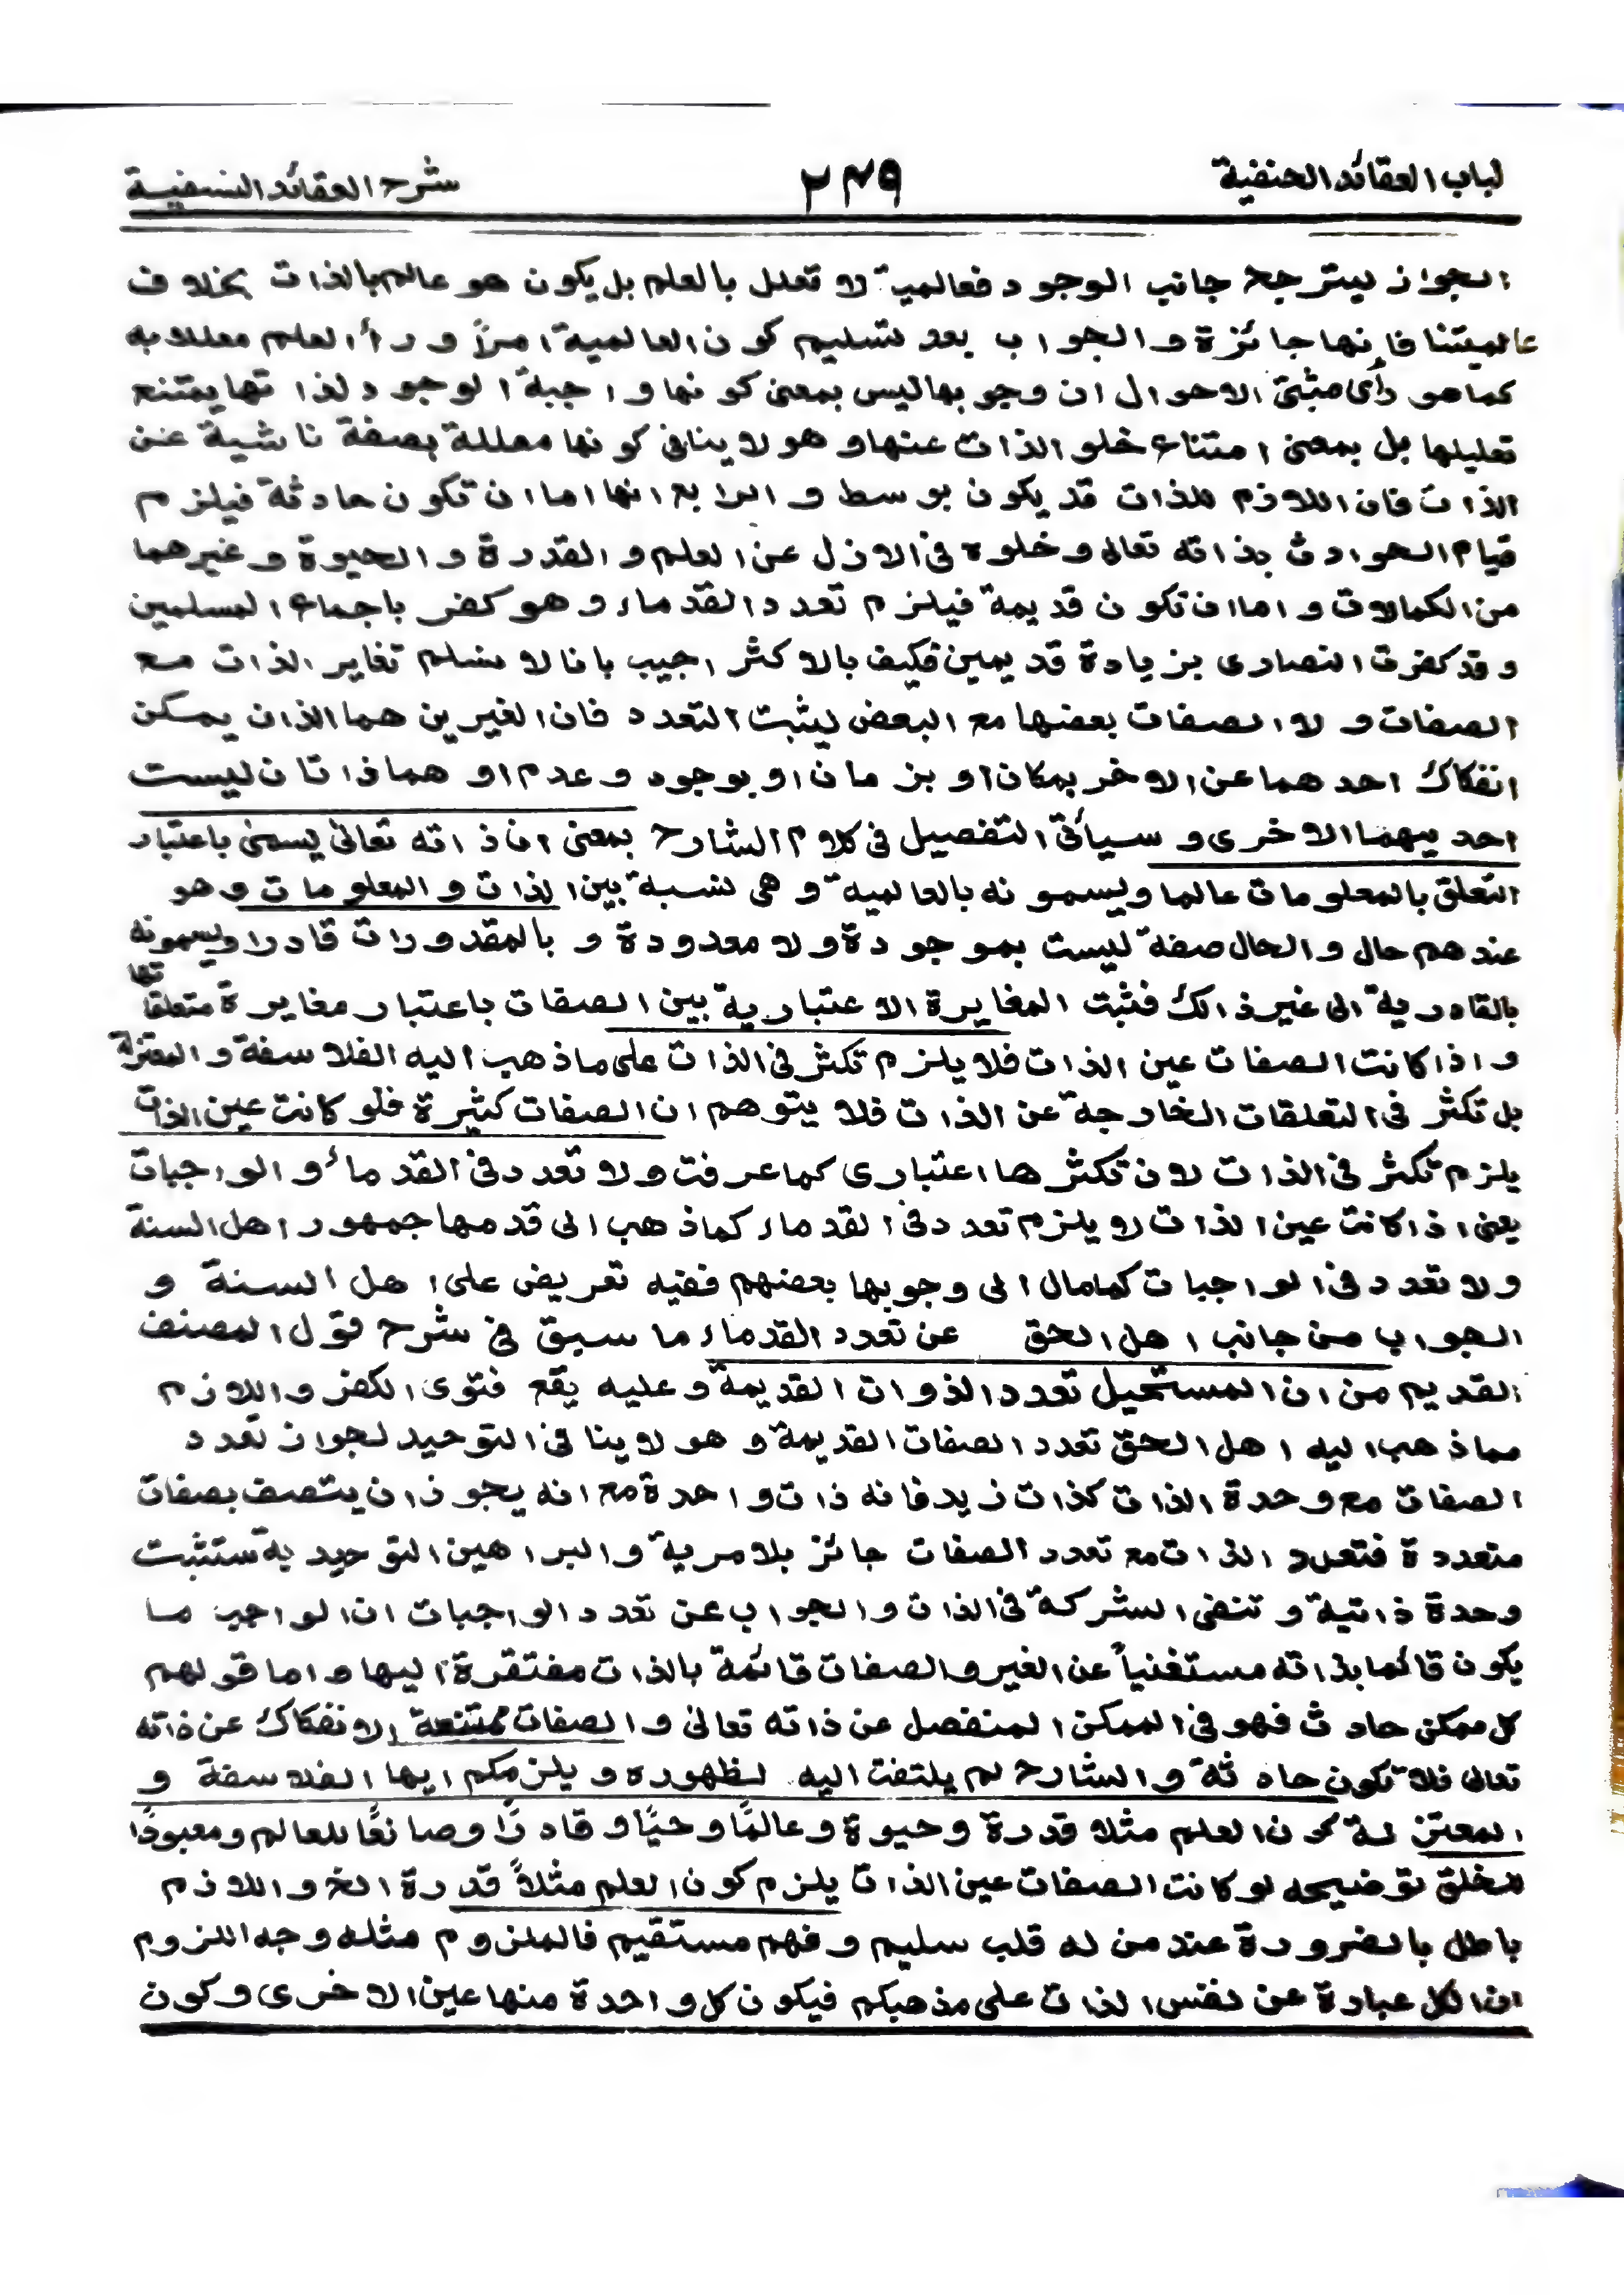 لباب العقائد الحنفية ٢٤٩ شرح العقائد النسفية
الجواز ليترجح جانب الوجود فعالمية لا تعلل بالعلم بل يكون هو عالم بالذات بخلاف
عالميتنا فإنها جائزة والجواب بعد تسليم كون العالمية امراً وراْ العلم معللا به
كما هو رأى مثبتى الاحوال ان وجوبها ليس بمعنى كونها واجبة الوجود لذاتها يمتنع
تعليلها بل بمعنى امتناع خلو الذات عنها وهو لا ينافى كونها معللة بصفة ناشية عن
الذات فان اللازم للذات قد يكون بوسط والرابع انها اما ان تكون حادثة فيلزم
قيام الحوادث بذاته تعالى وخلوه فى الازل عن العلم والقدرة والحيوة وغيرهما
من الكمالات و اما ان تكون قديمة فيلزم تعدد القدماء وهو كفر باجماع المسلمين
وقد كفرت النصارى بزيادة قديمين فكيف بالاكثر اجيب بانا لا نسلم تغاير الذات مع
الصفات و لا الصفات بعضها مع البعض ليثبت التعدد فان الغيرين هما الذان يمكن
انفكاك احدهما عن الاخر بمكان او بزمان او بوجود وعدم او هما ذاتان ليست
احديهما الاخرى و سيأتى التفصيل فى كلام الشارح بمعنى ان ذاته تعالى يسمى باعتبار
التعلق بالمعلومات عالما ويسمونه بالعالمية وهى نسبة بين الذات والمعلومات وهو
عندهم حال والحال صفة ليست بموجودة ولا معدودة و بالمقدورات قادرا ويسمونه
بالقادرية الى غير ذالك فثبت المغايرة الاعتبارية بين الصفات باعتبار مغايرة متعلقاتها
و اذا كانت الصفات عين الذات فلا يلزم تكثر فى الذات على ما ذهب اليه الفلاسفة والمعتزلة
بل تكثر فى التعلقات الخارجة عن الذات فلا يتوهم ان الصفات كثيرة فلو كانت عين الذات
يلزم تكثر فى الذات لان تكثرها اعتبارى كما عرفت ولا تعدد فى القدماْ و الواجبات
يعنى اذا كانت عين الذات لا يلزم تعدد فى القدماء كما ذهب الى قدمها جمهور اهل السنة
ولا تعدد فى الواجبات كما مال الى وجوبها بعضهم ففيه تعريض على اهل السنة و
الجواب من جانب اهل الحق عن تعدد القدماء ما سبق فى شرح قول المصنف
القديم من ان المستحيل تعدد الذوات القديمة وعليه يقع فتوى الكفر واللازم
مما ذهب اليه اهل الحق تعدد الصفات القديمة و هو لا ينا فى التوحيد لجواز تعدد
الصفات مع وحدة الذات كذات زيد فانه ذات واحدة مع انه يجوز ان يتصف بصفات
متعددة فتعدد الذات مع تعدد الصفات جائز بلا مرية والبراهين التوحيدية ستثبت
وحدة ذاتية و تنفى الشركة فى الذات والجواب عن تعدد الواجبات ان الواجب ما
يكون قائما بذاته مستغنياً عن الغير والصفات قائمة بالذات مفتقرة اليها واما قولهم
كل ممكن حادث فهو فى الممكن المنفصل عن ذاته تعالى والصفات ممتنعة الانفكاك عن ذاته
تعالى فلا تكون حادثة والشارح لم يلتفت اليه لظهوره و يلزمكم ايها الفلاسفة و
المعتزلة كون العلم مثلا قدرة وحيوة وعالمًا وحيًا و قادرًا وصانعًا للعالم ومعبودًا
للخلق توضيحه لو كانت الصفات عين الذات يلزم كون العلم مثلاً قدرة الخ واللازم
باطل بالضرورة عند من له قلب سليم وفهم مستقيم فالملزوم مثله وجه اللزوم
ان الكل عبارة عن نفس الذات على مذهبكم فيكون كل واحدة منها عين الاخرى وكون